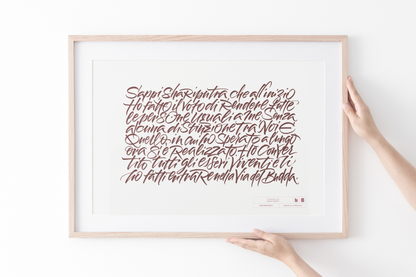 Sappi Shariputra che all'inizio
Ho fatto il voto di Rendere tutte
le persone uguali a me Senza
alcuna distinzione tra Noi E
Quello in cui ho Sperato a lungo
ora Si è Realizzato Ho Conver
tito tutti gli esseri Viventi e li
ho fatti entrare nella Via del Budda.